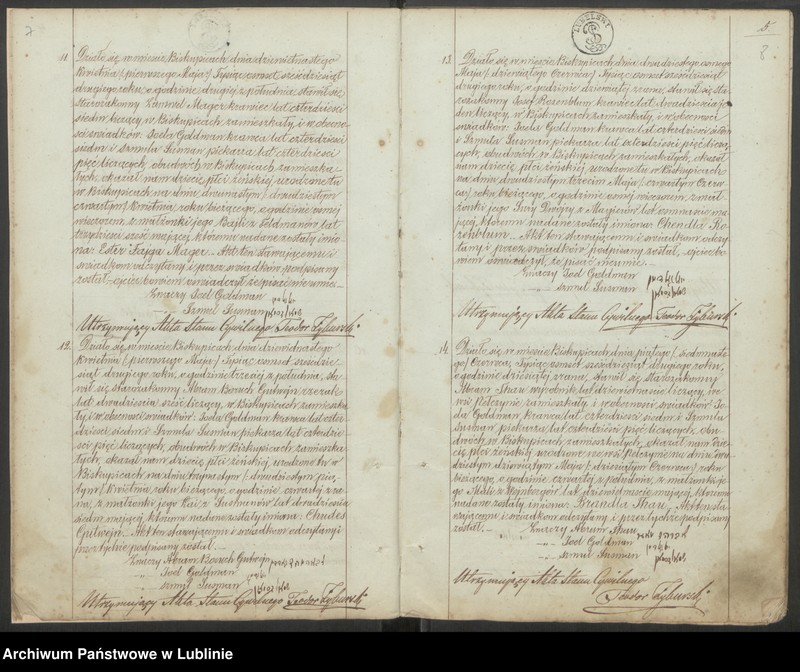 7
11. Działo się w mieście Biskupicach dnia dziewiętnastego
Kwietnia / pierwszego Maja / tysiąc ośmset sześćdziesiąt
drugiego roku, o godzinie drugiej z południa, stawił się
starozakonny Zanwel Mager kramiec lat czterdzieści
siedm liczący, w Biskupicach zamieszkały, i w obecno-
ści świadków: Joela Goldman krawca lat czterdzieści
siedm i Szmula Susman piekarza lat czterdzieści
pięć liczących, obudwóch w Biskupicach zamieszka-
łych, okazał nam dziecię płci żeńskiej urodzone tu
w Biskupicach na dniu dwunastym / dwudziestym
czwartym / Kwietnia roku bieżącego, o godzinie ósmej
wieczorem, z małżonki jego Bajli z Feldmanów, lat
trzydzieści sześć mającej, któremu nadane zostały imio-
na: Ester Fajga Mager. Akt ten stawającemu i
świadkom odczytany i przez świadków podpisany
został ojciec bowiem oświadczył że pisać nie umie.
Znaczy Joel Goldman
Szmul Susman
Utrzymujący Akta Stanu Cywilnego Teodor
12. Działo się w mieście Biskupicach, dnia dziewiętnastego
Kwietnia / pierwszego Maja / tysiąc ośmset sześćdzie-
siąt drugiego roku, o godzinie trzeciej z południa, sta-
wił się starozakonny Abram Boruch Gutwejn
lat dwadzieścia sześć liczący, w Biskupicach zamieszka-
ły, i w obecności świadków: Joela Goldman krawca lat czter-
dzieści siedm i Szmula Susman piekarza lat czterdzie-
ści pięć liczących, obudwóch w Biskupicach zamieszka-
łych, okazał nam dziecię płci żeńskiej, urodzone tu w
Biskupicach na dniu trzynastym / dwudziestym pią-
tym / Kwietnia, roku bieżącego, o godzinie czwartej z ra-
na, z małżonki jego z Suchmanów, lat dwadzieścia
siedm mającej, któremu nadane zostały imiona: Chudes
Gutwejn. Akt ten stawającemu i świadkom odczytany i
przez tychże podpisany został.
Znaczy Abram Boruch Gutwejn
Joel Goldman
Szmul Susman
Utrzymujący Akta Stanu Cywilnego Teodor
LUBELSKI
5
8.
13. Działo się w mieście Biskupicach, dnia dwudziestego ósmego
Maja / dziewiątego Czerwca / tysiąc ośmset sześćdziesiąt
drugiego roku, o godzinie dziewiątej z rana, stawił się sta-
rozakonny Josef Rozenblum kramiec lat dwadzieścia je-
den liczący, w Biskupicach zamieszkały, i w obecności
świadków: Joela Goldman krawca lat czterdzieści siedm
i Szmula Susman piekarza lat czterdzieści pięć liczą-
cych, obudwóch w Biskupicach zamieszkałych, okazał
nam dziecię płci żeńskiej, urodzone tu w Biskupicach
na dniu dwudziestym trzecim Maja / czwartym Czerw-
ca / roku bieżącego, o godzinie ósmej wieczorem, z mał-
żonki jego Sury Dwojry z Magierów lat ośmnaście ma-
jącej, któremu nadane zostały imiona: Chendla Ro-
zenblum. Akt ten stawającemu i świadkom odczy-
tany i przez świadków podpisany został, ojciec bo-
wiem oświadczył, że pisać nie umie.
Znaczy Joel Goldman
Szmul Susman
Utrzymujący Akta Stanu Cywilnego Teodor
14. Działo się w mieście Biskupicach, dnia piątego / siedmnaste-
go / Czerwca, tysiąc ośmset sześćdziesiąt drugiego roku,
o godzinie dziesiątej z rana, stawił się starozakonny
Abram wyrobnik, lat dziewiętnaście liczący, we
wsi Pełczynie zamieszkały, i w obecności świadków: Jo-
ela Goldman, krawca lat czterdzieści siedm i Szmula
Susman piekarza lat czterdzieści pięć liczących, obu-
dwóch w Biskupicach zamieszkałych, okazał nam dzie-
cię płci żeńskiej urodzone we wsi Pełczynie na dniu dwu-
dziestym dziewiątym Maja / dziesiątym Czerwca / roku
bieżącego, o godzinie czwartej z południa, z małżonki je-
go z Wajnbergów lat dziewiętnaście mającej, któremu
nadane zostały imiona: Brandla. Akt ten sta-
wającemu i świadkom odczytany i przez tychże podpisany
został.
Znaczy Abram
Joel Goldman
Szmul Susman
Utrzymujący Akta Stanu Cywilnego
Teodor
Archiwum Państwowe w Lublinie